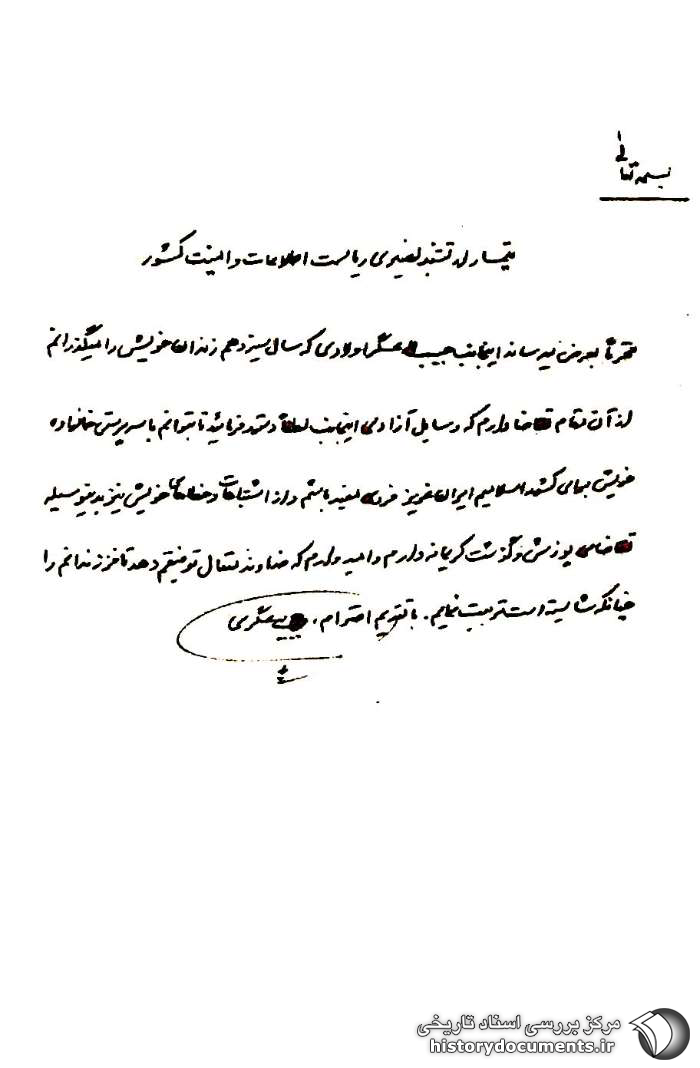 بسمه تعالی
تیمسار ارتشبد نصیری ریاست اطلاعات و امنیت کشور
محترماً بعرض میرساند اینجانب حبیب اله عسگراولادی که سال سیزدهم زندان خویش را میگذرانم
از آن مقام تقاضا دارم که وسایل آزادی اینجانب لطفاً دستور فرمائید تا بتوانم با سرپرستی خانواده
خویش برای کشور اسلامیم ایران عزیز فردی مفید باشم و از اشتباهات و خطاهای خویش نیز بدینوسیله
تقاضای پوزش و گذشت کریمانه دارم و امید وارم که خداوند متعال توفیقم دهد تا فرزندانم را
چنانکه شایسته است تربیت نمایم. با تقدیم احترام، عسگری
مرکز بررسی اسناد تاریخی
historydocuments.ir